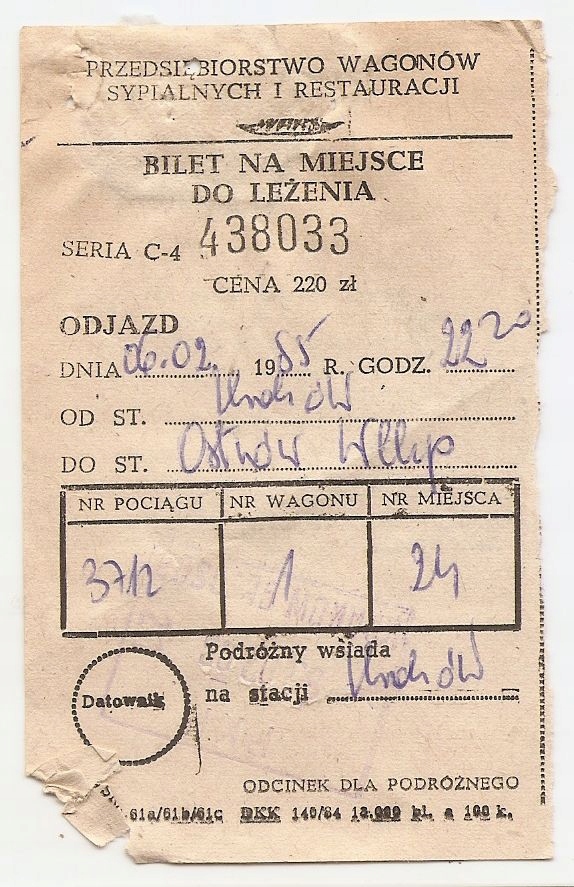 PRZEDSIĘBIORSTWO WAGONÓW
SYPIALNYCH I RESTAURACJI
BILET NA MIEJSCE
DO LEŻENIA
SERIA C-4 438033
CENA 220 zł
ODJAZD
DNIA 06.02. 1985 R. GODZ. 22 20
OD ST. Kraków
DO ST. Ostrów Wlkp
NR POCIĄGU NR WAGONU NR MIEJSCA
3712 1 24
Podróżny wsiada
na stacji Kraków
Datownik
ODCINEK DLA PODRÓŻNEGO
61a/61b/61c DKK 140/84 13.000 bl. a 100 k.